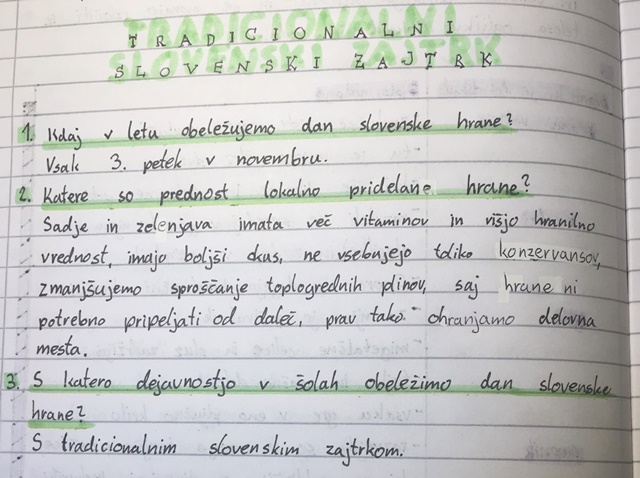 TRADICIONALNI
SLOVENSKI ZAJTRK
1. Kdaj v letu obeležujemo dan slovenske hrane?
Vsak 3. petek v novembru.
2. Katere so prednost lokalno pridelane hrane?
Sadje in zelenjava imata več vitaminov in višjo hranilno
vrednost, imajo boljši okus, ne vsebujejo toliko konzervansov,
zmanjšujemo sproščanje toplogrednih plinov, saj hrane ni
potrebno pripeljati od daleč, prav tako ohranjamo delovna
mesta.
3. S katero dejavnostjo v šolah obeležimo dan slovenske
hrane?
S tradicionalnim slovenskim zajtrkom.